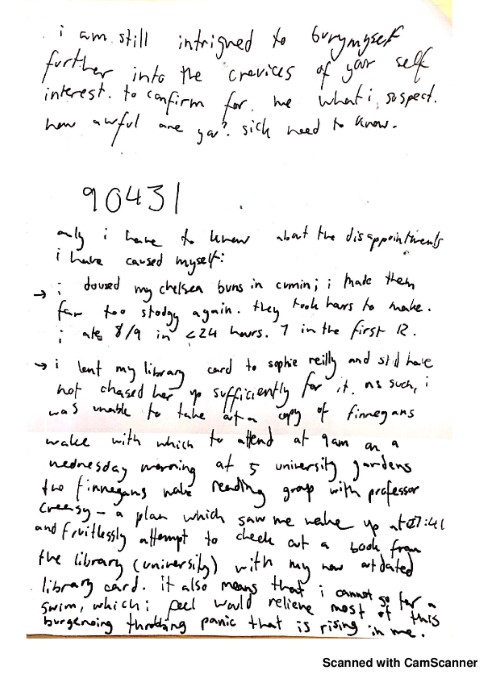 i am still intrigued to bury myself
further into the crevices of your self
interest. to confirm for me what i suspect.
how awful are you? sick need to know.
90431
only i have to know about the disappointments
i have caused myself:
→ i doused my chelsea buns in cumin; i make them
far too stodgy again. they took hours to make.
i ate 8/9 in <24 hours. 7 in the first 12.
→ i lent my library card to sophie reilly and still have
not chased her up sufficiently for it. as such, i
was unable to take out a copy of finnegans
wake with which to attend at 9am on a
wednesday morning at 5 university gardens
the finnegans wake reading group with professor
creasy – a plan which saw me wake up at 07:41
and fruitlessly attempt to check out a book from
the library (university) with my now outdated
library card. it also means that i cannot go for a
swim, which i feel would relieve most of this
burgeoning throbbing panic that is rising in me.
Scanned with CamScanner